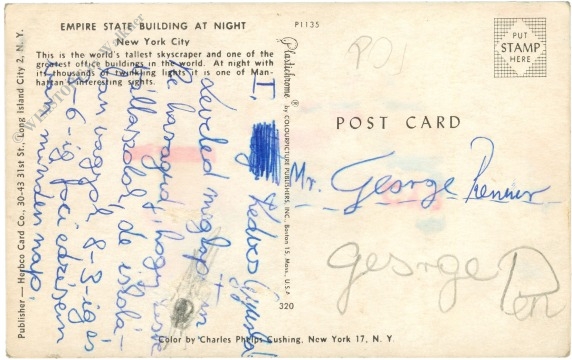 EMPIRE STATE BUILDING AT NIGHT
New York City
This is the world's tallest skyscraper and one of the
greatest office buildings in the world. At night with
its thousands of twinkling lights it is one of Man-
hattan's interesting sights.
P1135
PUT
STAMP
HERE
POST CARD
Mr. George
george
I. Kedves
leveled megkaptam
Ne haragudj, hogy
válaszolok, de iskolá-
ban vagyok 8-3-ig és
3-6-ig foci edzésein
minden nap.
Publisher — Herbco Card Co., 30-43 31st St., Long Island City 2, N. Y.
Plastichrome ® by COLOURPICTURE PUBLISHERS, INC., Boston 15, Mass., U.S.A.
320
Color by Charles Phelps Cushing, New York 17, N. Y.